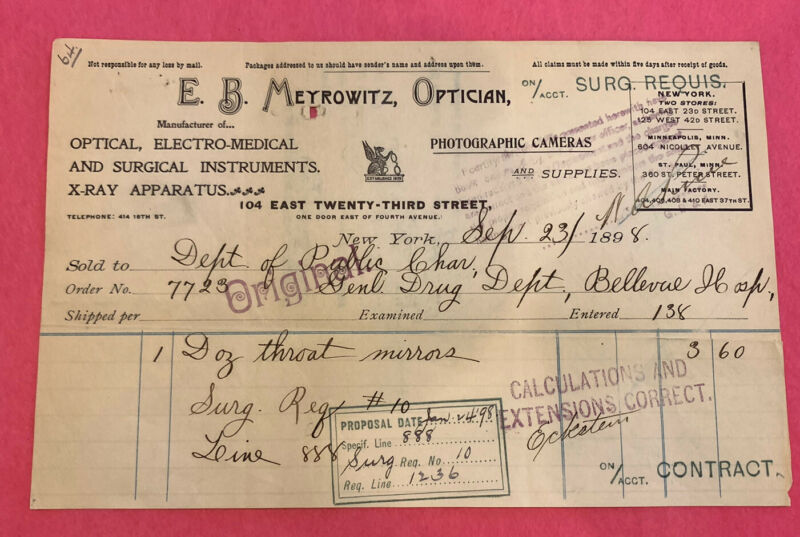 64/
Not responsible for any loss by mail. Packages addressed to us should have sender's name and address upon them. All claims must be made within five days after receipt of goods.
ON/ACCT. SURG. REQUIS.
E. B. Meyrowitz, Optician,
Manufacturer of...
OPTICAL, ELECTRO-MEDICAL
AND SURGICAL INSTRUMENTS.
X-RAY APPARATUS...
PHOTOGRAPHIC CAMERAS
AND SUPPLIES.
NEW YORK.
TWO STORES:
104 EAST 23D STREET.
125 WEST 42D STREET.
MINNEAPOLIS, MINN.
604 NICOLLET AVENUE.
ST. PAUL, MINN.
360 ST. PETER STREET.
MAIN FACTORY.
404, 406, 408 & 410 EAST 37TH ST.
104 EAST TWENTY-THIRD STREET,
TELEPHONE: 414 18TH ST. ONE DOOR EAST OF FOURTH AVENUE.
New York, Sep. 23/ 1898.
Sold to Dept. of Public Char,
Order No. 7723 Genl. Drug Dept, Bellevue Hosp,
Original
Shipped per Examined Entered 138
1 Doz throat mirrors 3 60
Surg. Req # 10
Line 888
CALCULATIONS AND
EXTENSIONS CORRECT.
Eckstein
PROPOSAL DATE Jan. 24. 98
Specif. Line 888
Surg Req. No. 10
Req. Line 1236
ON/ACCT. CONTRACT.